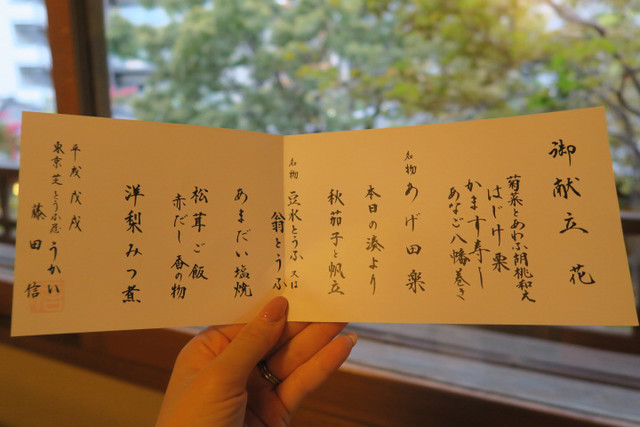 御献立 花
菊菜とあわふ胡桃和え
はじけ栗
かます寿し
あなご八幡巻き
名物 あげ田楽
本日の湊より
秋茄子と帆立
名物 豆水とうふ 又は
翁とうふ
あまだい塩焼
松茸ご飯
赤だし 香の物
洋梨みつ煮
平成戊戌
東京芝とうふ屋うかい
藤田 信